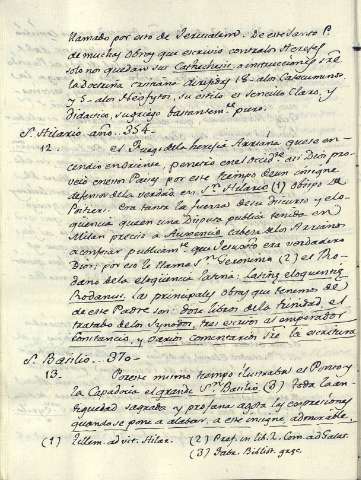 llamado por esto de Jerusalem. De este Santo P.
de muchas Obras que escrivió contra los Hereges
solo nos quedan sus Cathechesis, o instrucciones sre
la Doctrina cristiana dirigidas 18- a los Catecumenos
y 5- a los Neofytos, su estilo es sencillo claro, y
Didactico, su griego bastantemte puro.
S. Hilario año. 354.
12. El fuego de la heregia Arriana que se en-
cendió en oriente, penetró en el Occidte. assi Dios pro-
veió en este País por este tiempo de un insigne
defensor de la verdad en Sn Hilario (1) Obispo de
Poitiers. Era tanta la fuerza de su discurso y elo-
quencia que en una Disputa publica tenida en
Milan precisó a Auxencio cabeza de los Arrianos
a confesar publicamte. que Jesucto era verdadero
Dios: por eso le llama Sn Geronimo (2) el Rho-
dano de la eloqüencia latina: latinæ eloquentiæ
Rodanus. las principales obras que tenemos de
de este Padre son: doce libros de la trinidad, el
tratado de los Synodos, tres escritos al emperador
Constancio, y varios comentarios sre la escritura
S. Basilio. 370.
13. Por este mismo tiempo ilustraba el Ponto y
la Capadocia el grande Sn Basilio (3) toda la an-
tiguedad sagrada y profana agota las expresiones
quando se pone a alabar, a este insigne, admirable,
(1) Tillem. ad vit. Hilar. (2) Praef. in lib. 2. Com. ad Galat.
(3) Fabr. Bibliot. græc.